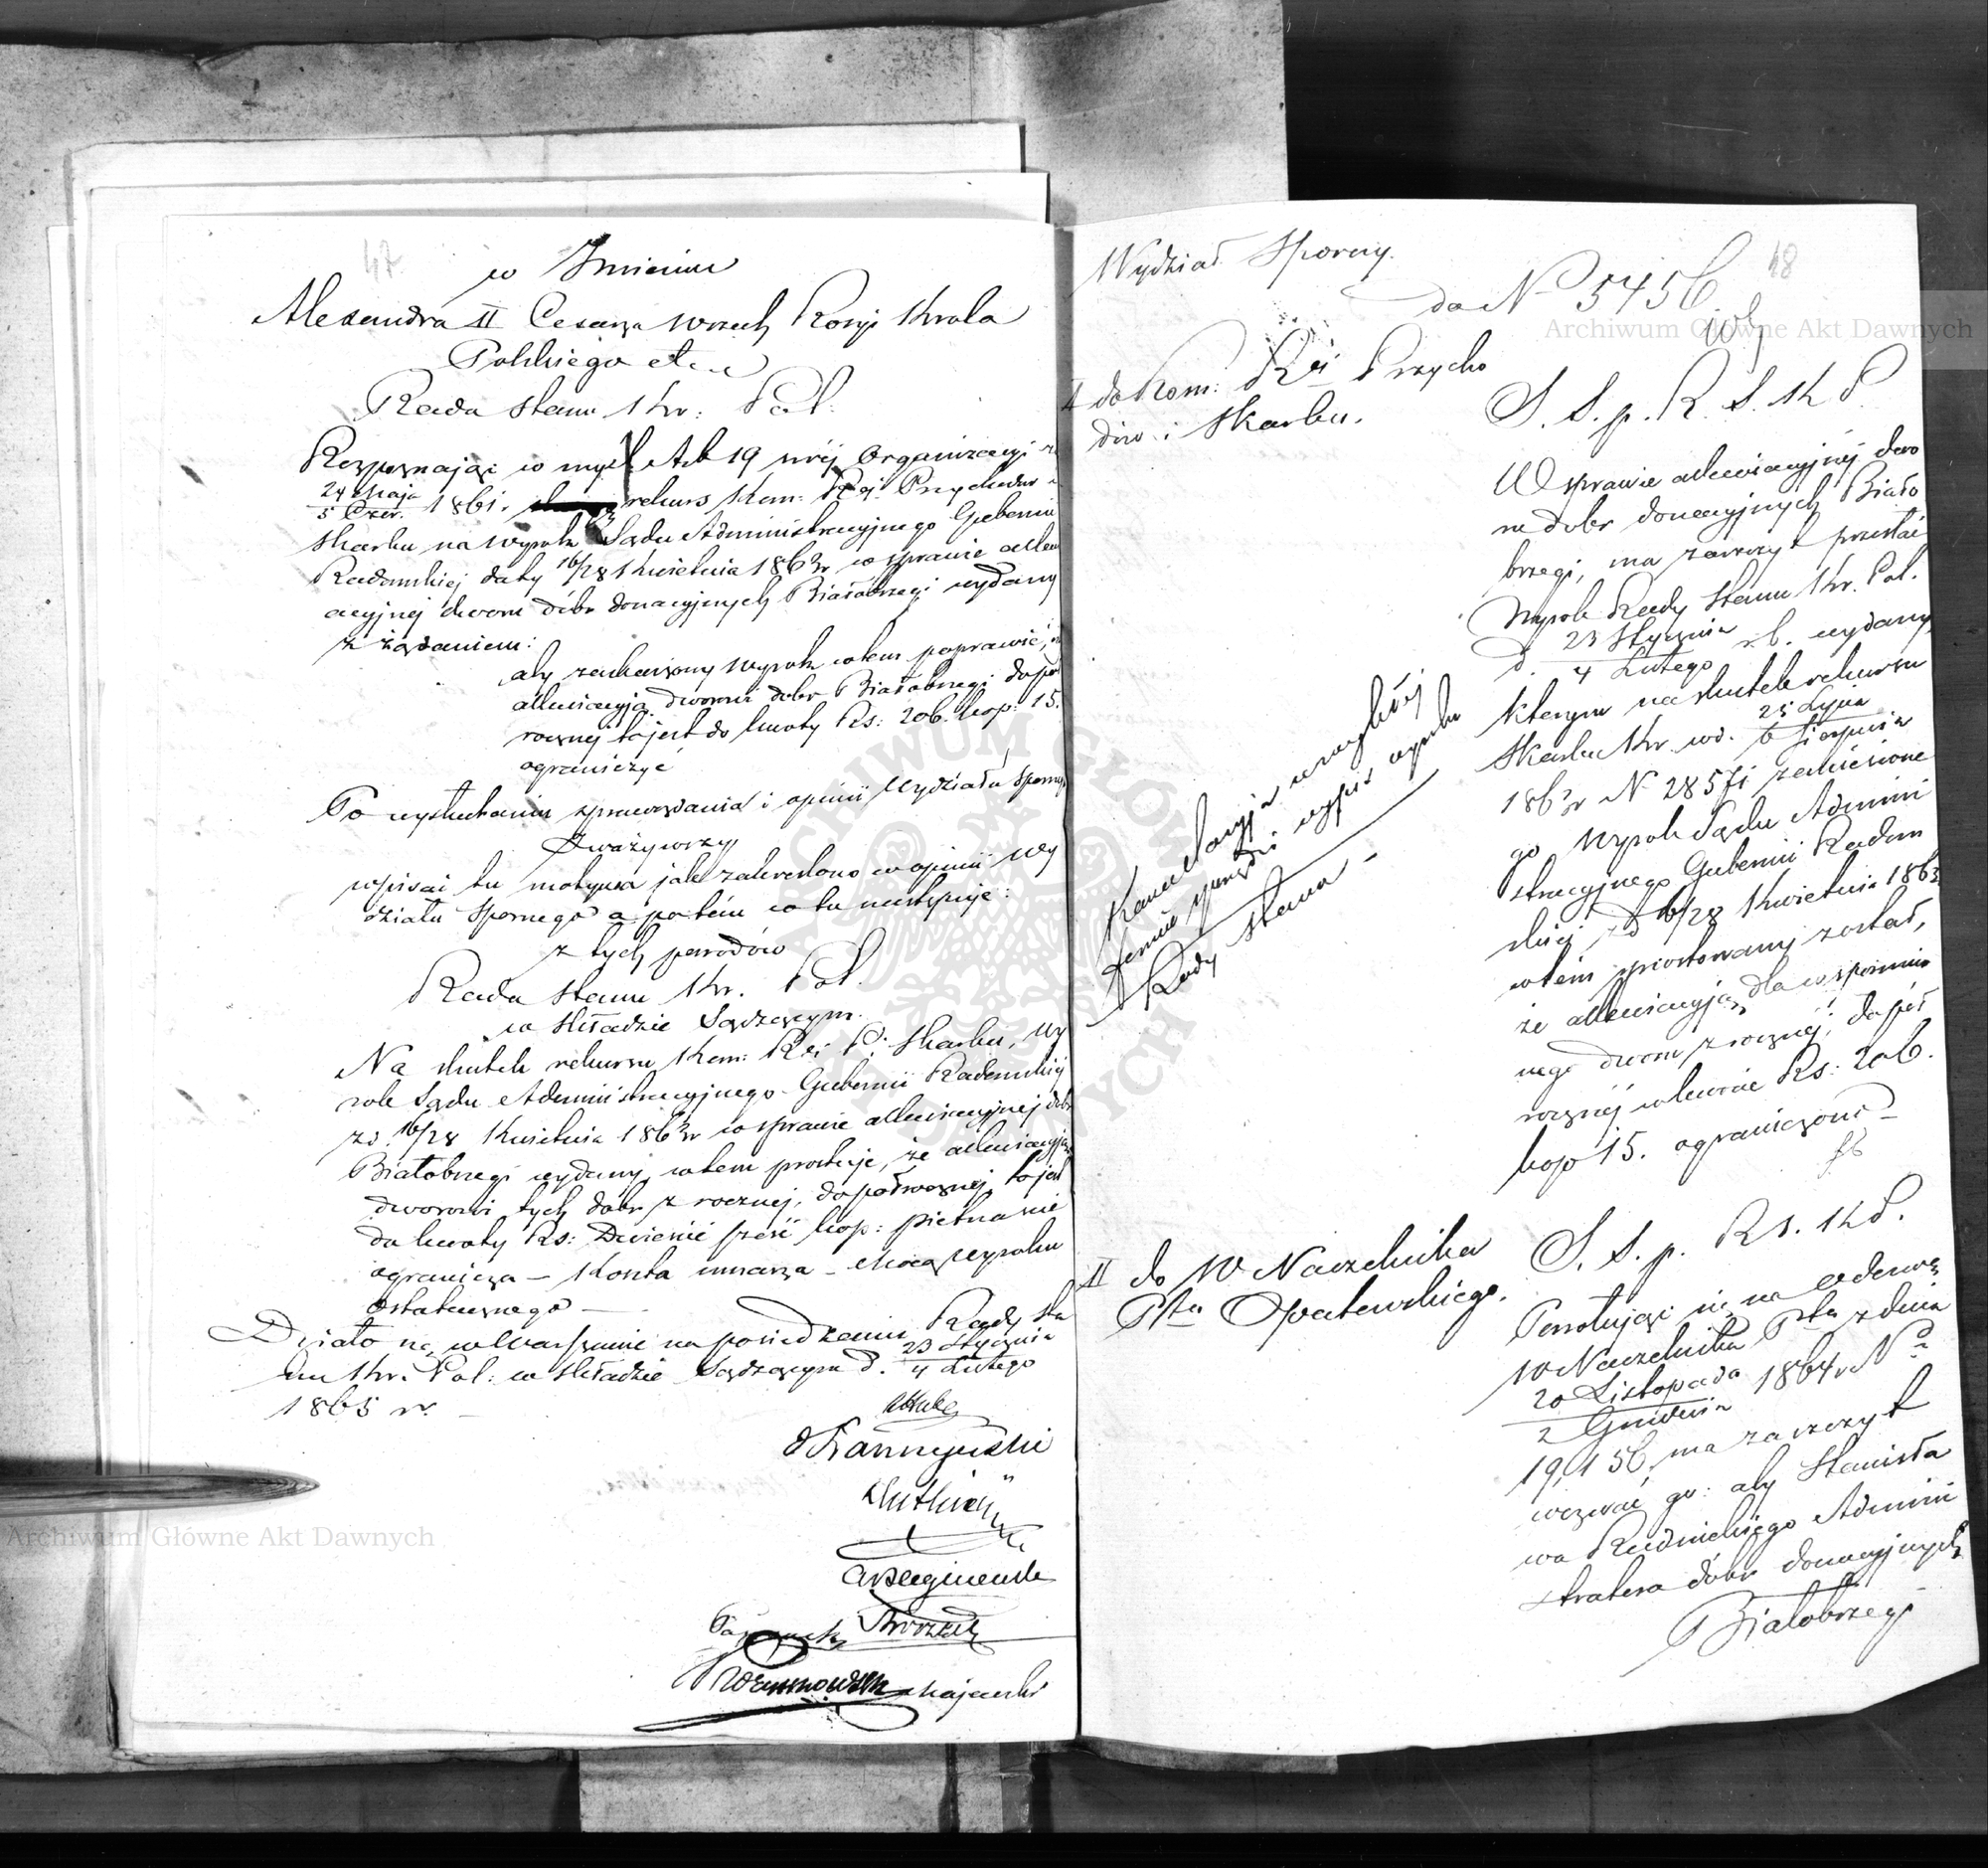 47
w Imieniu
Alexandra II Cesarza wszech Rosyi Króla
Polskiego etc
Rada Stanu Kr: Pol:
Rozpoznając w myśl Art 19 swéj Organizacyi z
24 Maja
5 Czer. 1861 r. rekurs Kom: Rzą. Przychodów i
Skarbu na wyrok Sądu Administracyjnego Gubernii
Radomskiej daty 16/28 Kwietnia 1863 r w sprawie allew
acyjnej dworu dóbr donacyjnych Białobrzegi wydany
z żądaniem:
aby zaskarżony wyrok w tem poprawić,
allewiacyją dworowi dóbr Białobrzegi do pół
rocznej to jest do kwoty Rs: 206. kop: 15.
ograniczyć
Po wysłuchaniu sprawozdania i opinii Wydziału Sporneg
Zważywszy
wpisać tu motywa jak zakreślono w opinii Wy
działu Spornego a potém co tu następuje:
z tych powodów
Rada Stanu Kr. Pol.
w składzie Sądzącym.
Na skutek rekursu Kom: Rz: P: Skarbu, wy
rok Sądu Administracyjnego Gubernii Radomskiéj
z d. 16/28 Kwietnia 1863 r w sprawie allewiacyjnej dóbr
Białobrzegi wydany, w tem prostuje, że allewiacyją
dworowi tych dóbr z rocznej, do półrocznej, to jest
do kwoty Rs: Dwieście sześć kop: piętnaście
ogranicza – Koszta umarza – Mocą wyroku
ostatecznego –
Działo się w Warszawie na posiedzeniu Rady Sta
nu Kr. Pol: w składzie Sądzącym d. 23 Stycznia
4 Lutego
1865 r. –
Hube
Majewski
48
Wydział Sporny.
do No 5456
I do Kom: Rzi Przycho
dów i Skarbu.
S. S. p. R. S. K P.
W sprawie allewiacyjnéj dwo
ru dóbr donacyjnych Biało
brzegi, ma zaszczyt przesłać
Wyrok Rady Stanu Kr. Pol.
d. 23 Stycznia
4 Lutego r.b. wydany,
którym na skutek rekursu
Skarbu Kr. w d. 25 Lipca
6 Sierpnia
1863 r N 28571 zaniesione
go Wyrok Sądu Admini
stracyjnego Gubernii Radom
skiéj z d 16/28 Kwietnia 1863
w tém sprostowany został,
że allewiacyją dla wspomnio
nego dworu z rocznéj, do pół
rocznéj w kwocie Rs: 206.
kop 15. ograniczono –
Kancelaryja uwzględni
wypis wyroku
Rady Stanu –
II do W Naczelnika
Ptu Opatowskiego.
S. S. p. R S. K P.
Powołując się na odezwę
W Naczelnika Ptu z dnia
20 Listopada
2 Grudnia 1864 r No
19,156, ma zaszczyt
wezwać go: aby Stanisła
wa Rudnickiego Admini
stratora dóbr donacyjnych
Białobrzegi
Archiwum Główne Akt Dawnych
Archiwum Główne Akt Dawnych
ARCHIWUM GŁÓWNE AKT DAWNYCH